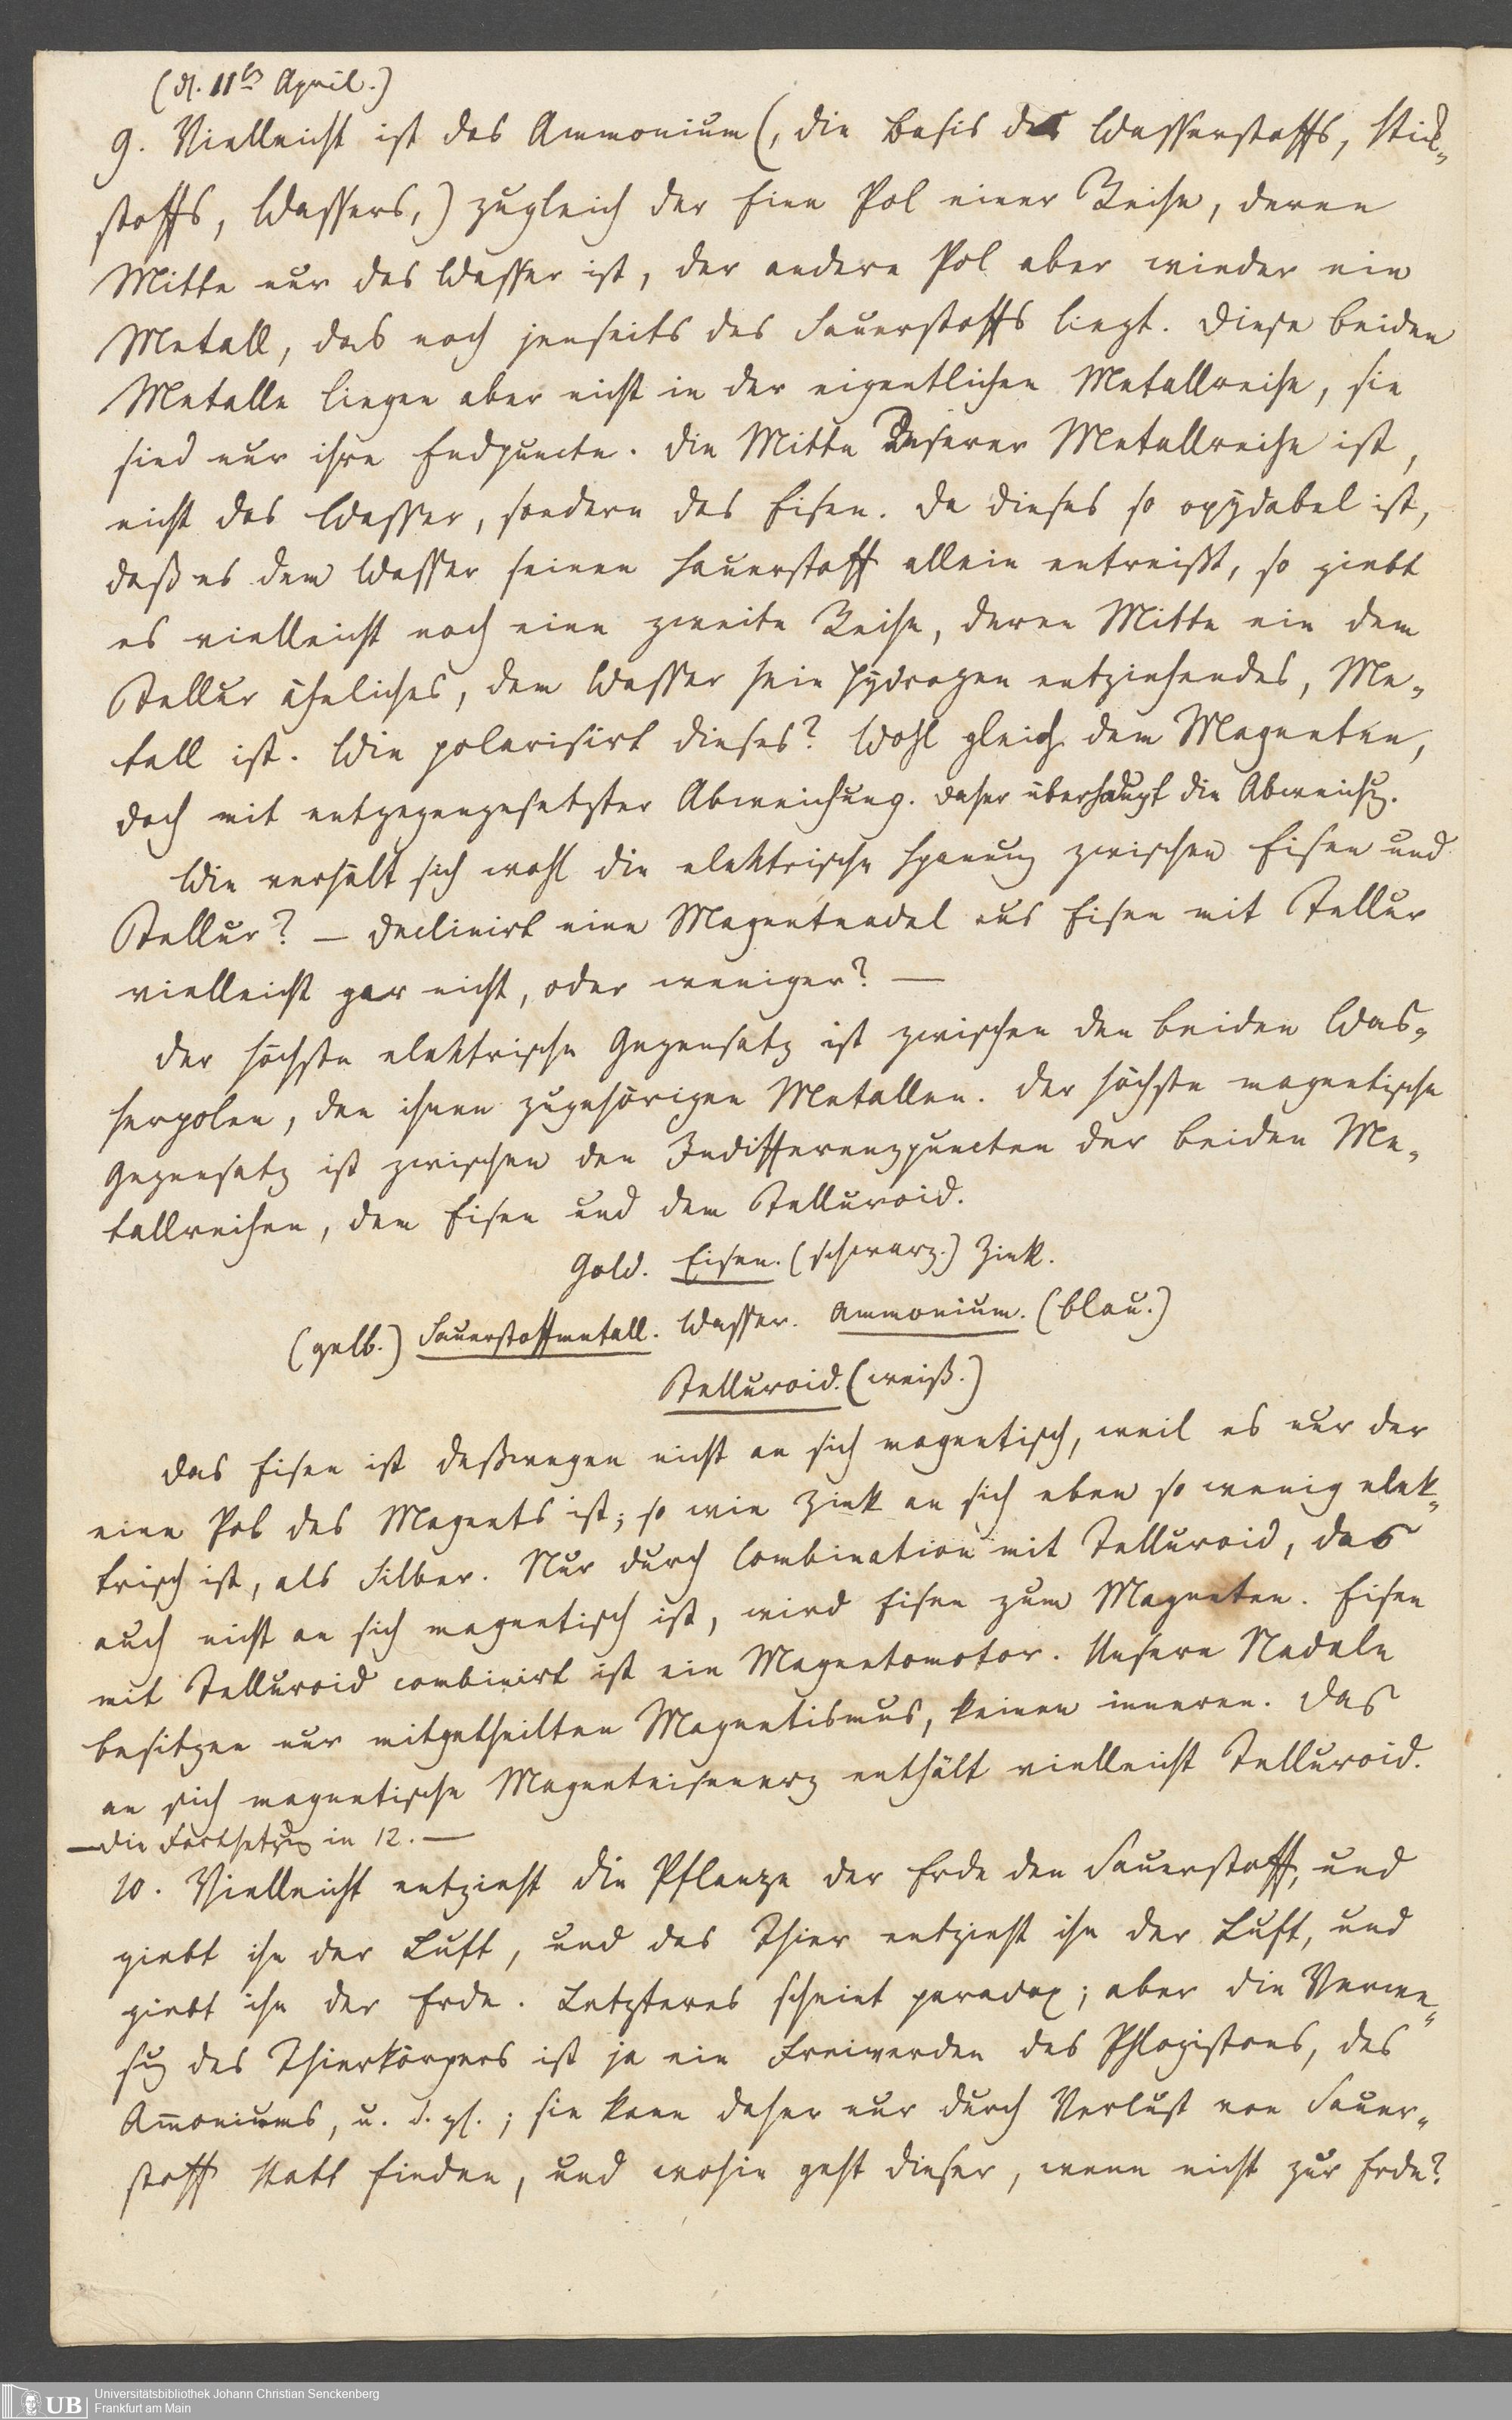 (d. 11ten April.)
9. Vielleicht ist das Ammonium (, die Basis des Wasserstoffs, Stick-
stoffs, Wassers,) zugleich der Eine Pol einer Reihe, deren
Mitte nur das Wasser ist, der andere Pol aber wieder ein
Metall, das noch jenseits des Sauerstoffs liegt. Diese beiden
Metalle liegen aber nicht in der eigentlichen Metallreihe, sie
sind nur ihre Endpuncte. Die Mitte Unserer Metallreihe ist,
nicht das Wasser, sondern das Eisen. Da dieses so oxydabel ist,
daß es dem Wasser seinen Sauerstoff allein entreißt, so giebt
es vielleicht noch eine zweite Reihe, deren Mitte ein dem
Tellur ähnliches, dem Wasser sein Hydrogen entziehendes, Me-
tall ist. Wie polarisirt dieses? Wohl gleich dem Magneten,
doch mit entgegengesetzter Abweichung. Daher überhaupt die Abweichg.
Wie verhält sich wohl die elektrische Spannung zwischen Eisen und
Tellur? — Declinirt eine Magnetnadel aus Eisen mit Tellur
vielleicht gar nicht, oder weniger? —
Der höchste elektrische Gegensatz ist zwischen den beiden Was-
serpolen, den ihnen zugehörigen Metallen. Der höchste magnetische
Gegensatz ist zwischen den Indifferenzpuncten der beiden Me-
tallreihen, dem Eisen und dem Telluroid.
Gold. Eisen. (schwarz.) Zink.
(gelb.) Sauerstoffmetall. Wasser. Ammonium. (blau.)
Telluroid. (weiß.)
Das Eisen ist deßwegen nicht an sich magnetisch, weil es nur der
eine Pol des Magnets ist; so wie Zink an sich eben so wenig elek-
trisch ist, als Silber. Nur durch Combination mit Telluroid, das
auch nicht an sich magnetisch ist, wird Eisen zum Magneten. Eisen
mit Telluroid combinirt ist ein Magnetomotor. Unsere Nadeln
besitzen nur mitgetheilten Magnetismus, keinen inneren. Das
an sich magnetische Magneteisenerz enthält vielleicht Telluroid.
— Die Fortsetzug in 12. —
10. Vielleicht entzieht die Pflanze der Erde den Sauerstoff, und
giebt ihn der Luft, und das Thier entzieht ihn der Luft, und
giebt ihn der Erde. Letzteres scheint paradox; aber die Verwe-
sg des Thierkörpers ist ja ein Freiwerden des Phlogistons, des
Am̄oniums, u. d. gl.; sie kann daher nur durch Verlust von Sauer-
stoff statt finden, und wohin geht dieser, wenn nicht zur Erde?
UB
Universitätsbibliothek Johann Christian Senckenberg
Frankfurt am Main